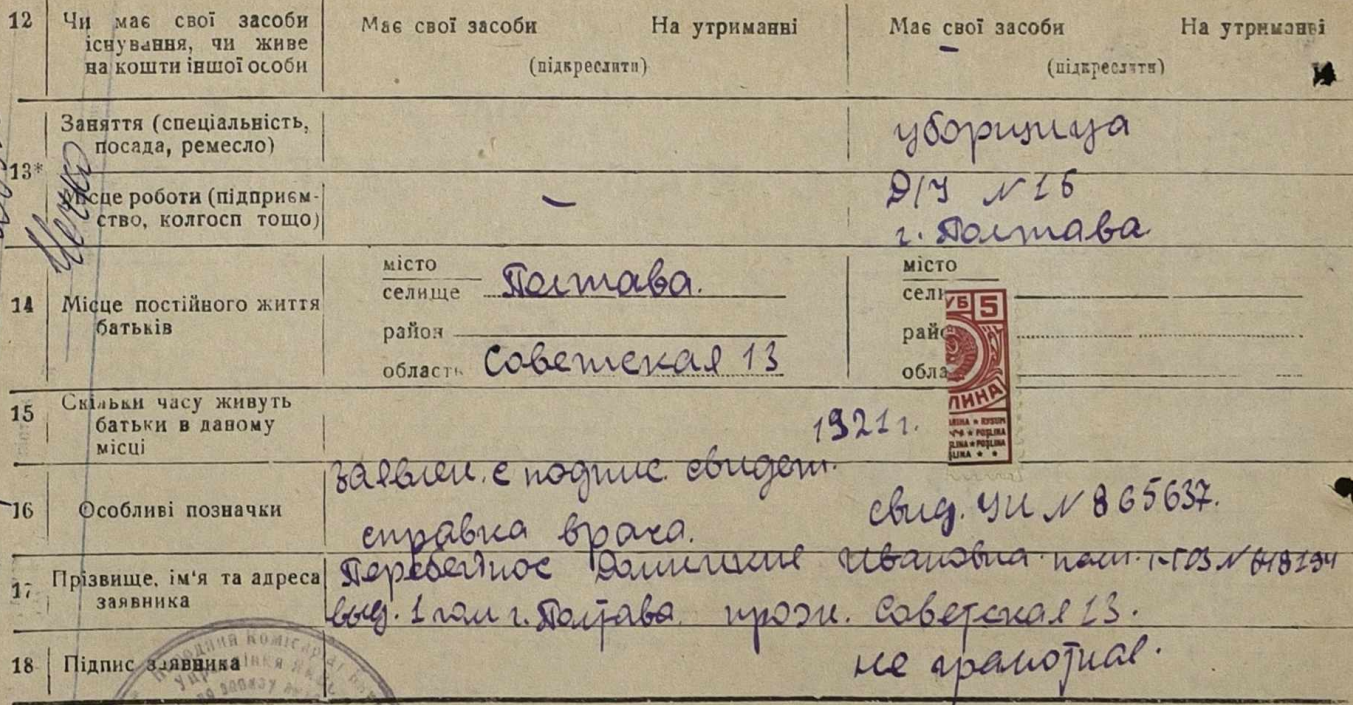 12 Чи має свої засоби існування, чи живе на кошти іншої особи
Має свої засоби На утриманні
(підкреслити)
Має свої засоби На утриманні
(підкреслити)
13*
Заняття (спеціальність, посада, ремесло)
уборщица
Місце роботи (підприєм-
ство, колгосп тощо)
–
Д/У N 16
г. Полтава
14 Місце постійного життя батьків
місто
селище Полтава.
район
область Советская 13
місто
сели
райо
обла
УБ 5
15 Скільки часу живуть батьки в даному місці
1921 г.
16 Особливі позначки
заявлен. с подпис. свидет.
справка врача.
свид. ЧИ N 865637.
17 Прізвище, ім'я та адреса заявника
Перебейнос Ивановна
выд. 1 г. Полтава прож. Советская 13.
18 Підпис заявника
не грамотная.
Народний Коміса
Управління